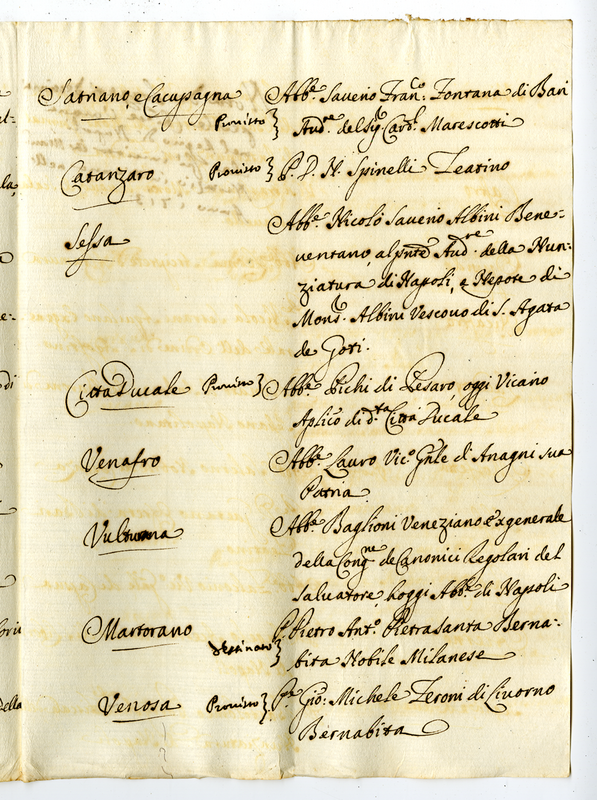 Satriano, e Cacupagna Abb.e Saverio Fran.co Fontana di Bari
Provisto} Aud.re del Sig.r Card.l Marescotti
Catanzaro Provisto} P. D. N. Spinelli Teatino
Sessa Abb.e Nicolò Saverio Albini Bene=
ventano, al pnte Aud.re della Nun=
ziatura di Napoli, e Nepote di
Mons.r Albini Vescovo di S. Agata
de Goti.
Città Ducale Provisto} Abb.e Pichi di Pesaro, oggi Vicario
Aplico di d.ta Città Ducale
Venafro Abb.e Lauro Vic.o Gnle d'Anagni sua
Patria
Vulturara Abb.e Baglioni Veneziano Exgenerale
della Cong.ne de Canonici Regolari del
Salvatore, hoggi Abb.e di Napoli
Martorano P. Pietro Ant.o Pietrasanta Berna=
destinato} bita Nobile Milanese
Venosa Provisto} P.re Gio: Michele Teroni di Livorno
Bernabita